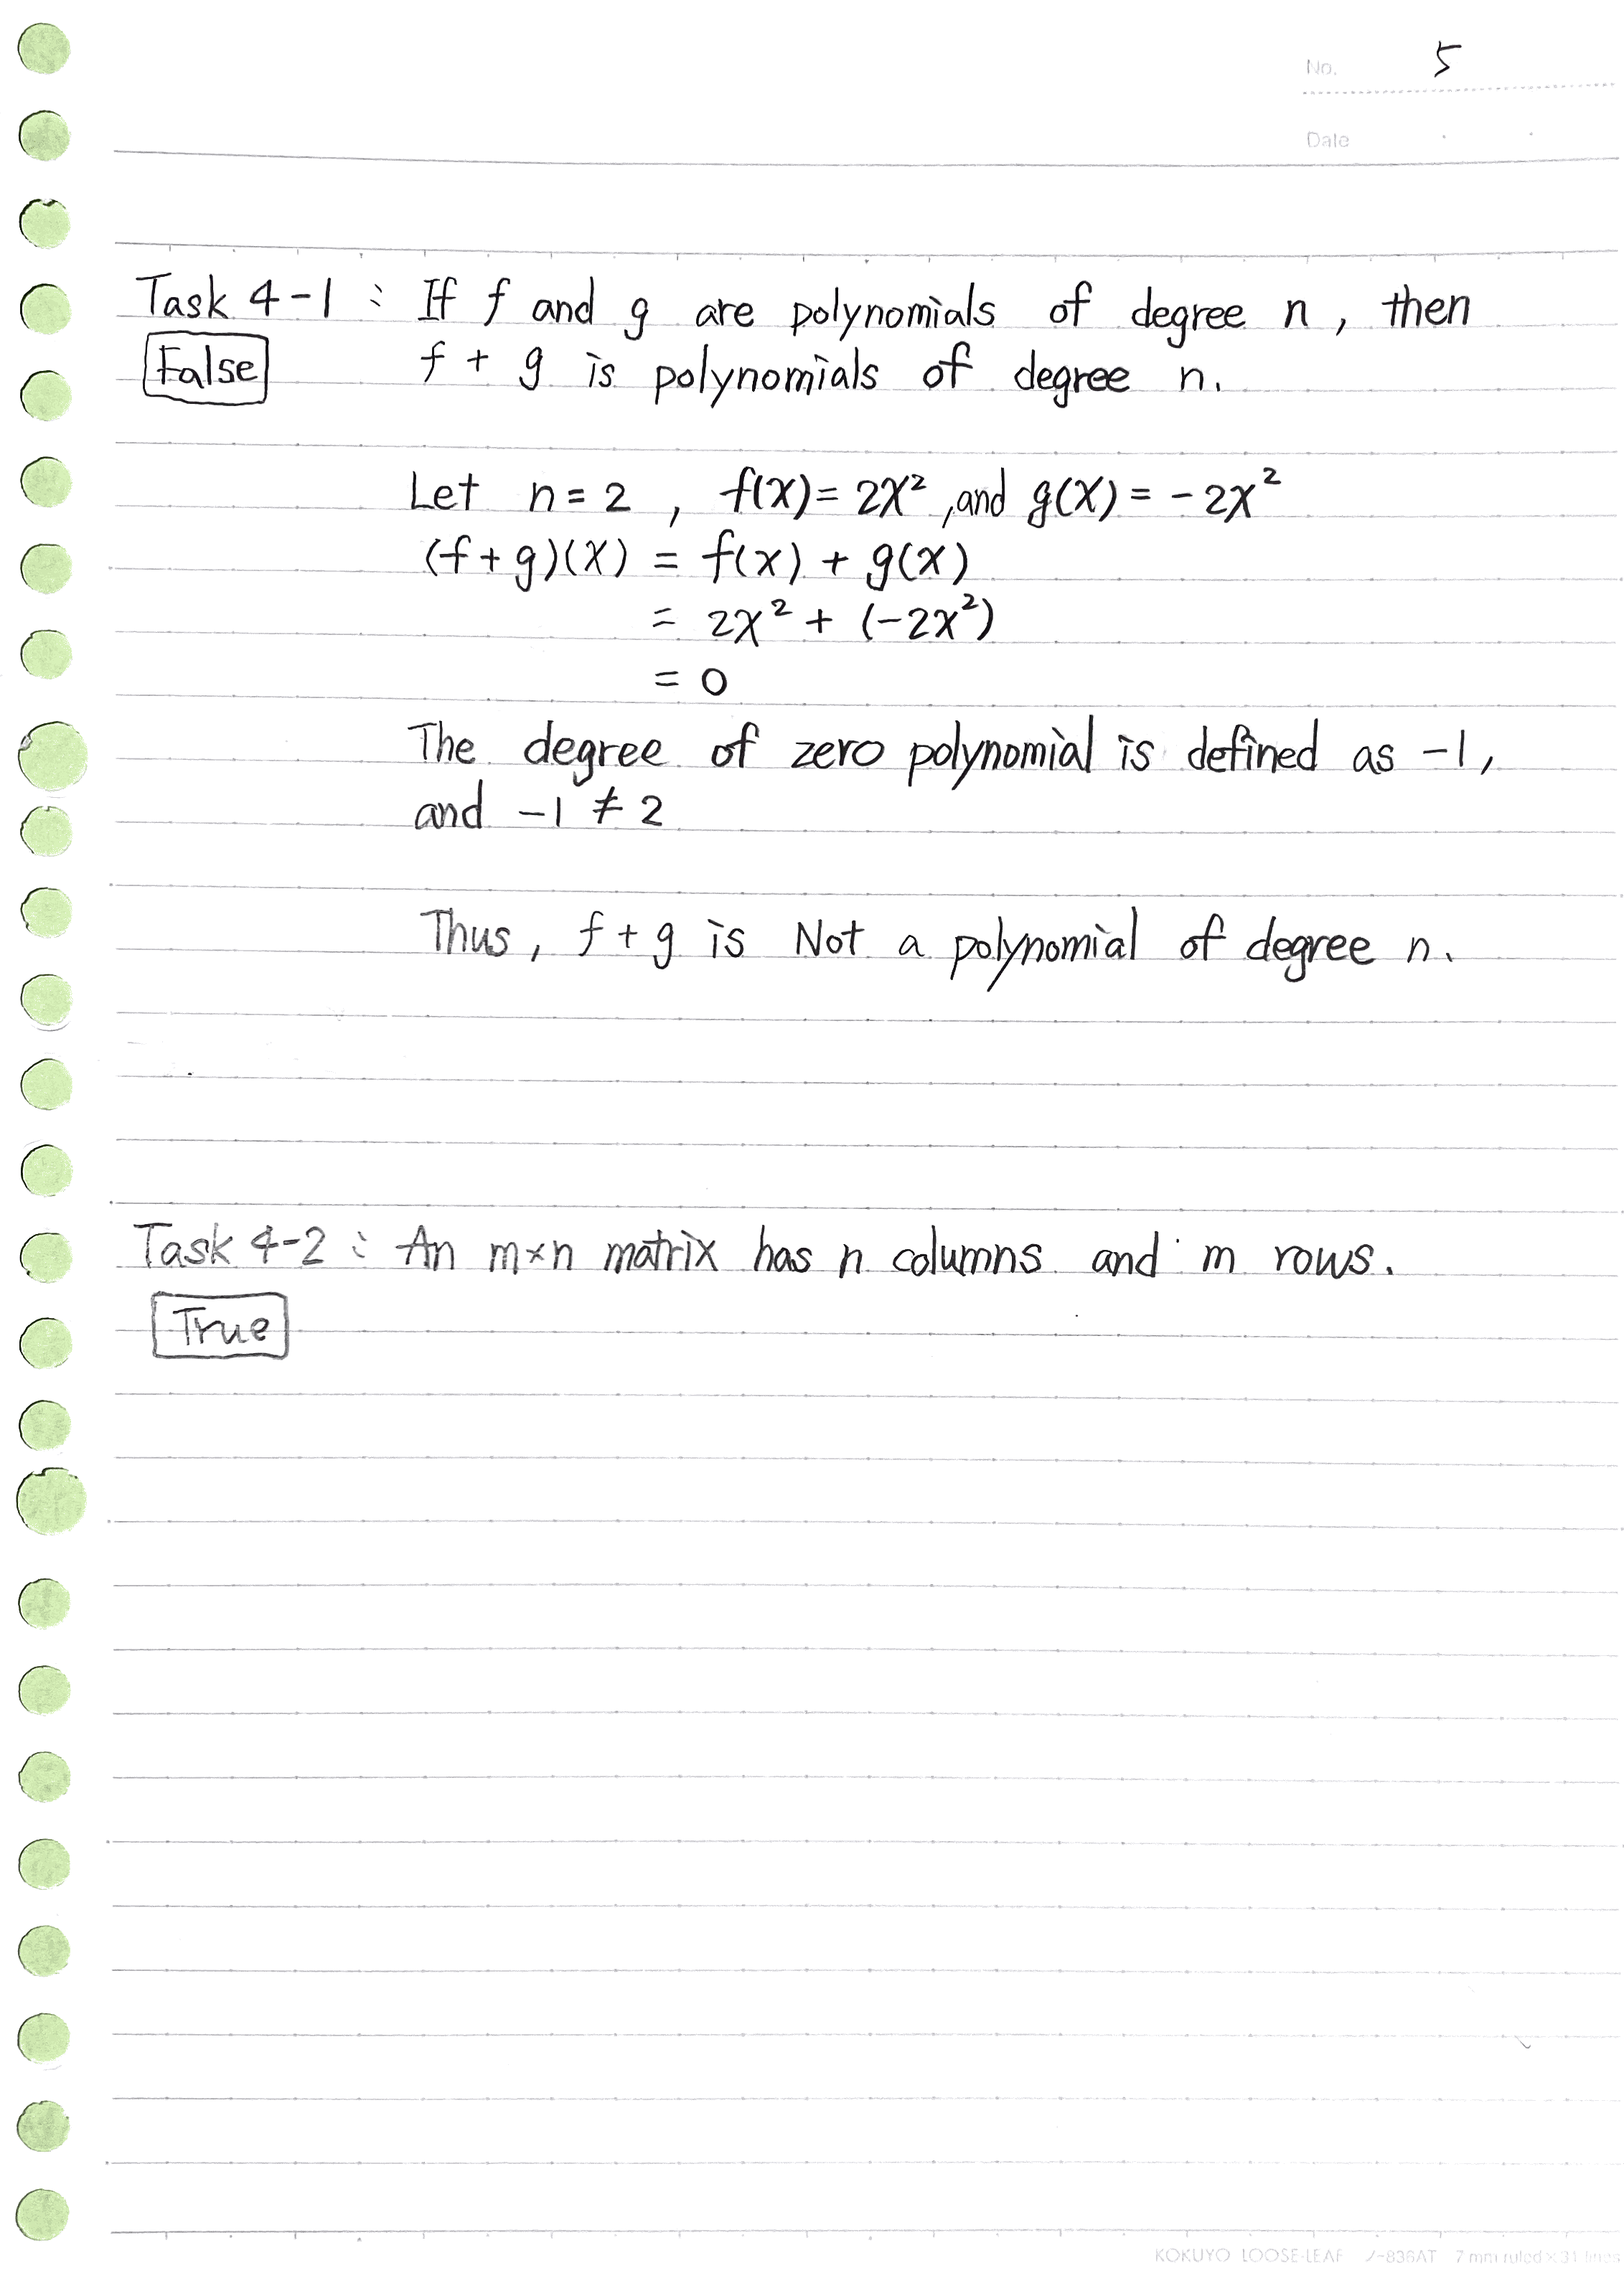 No. 5
Date
Task 4-1 : If f and g are polynomials of degree n, then
False f + g is polynomials of degree n.
Let n = 2 , f(x) = 2x² , and g(x) = -2x²
(f+g)(x) = f(x) + g(x)
= 2x² + (-2x²)
= 0
The degree of zero polynomial is defined as -1,
and -1 ≠ 2
Thus, f + g is Not a polynomial of degree n.
Task 4-2 : An m×n matrix has n columns and m rows.
True
KOKUYO LOOSE-LEAF ノ-836AT 7 mm ruled × 31 lines